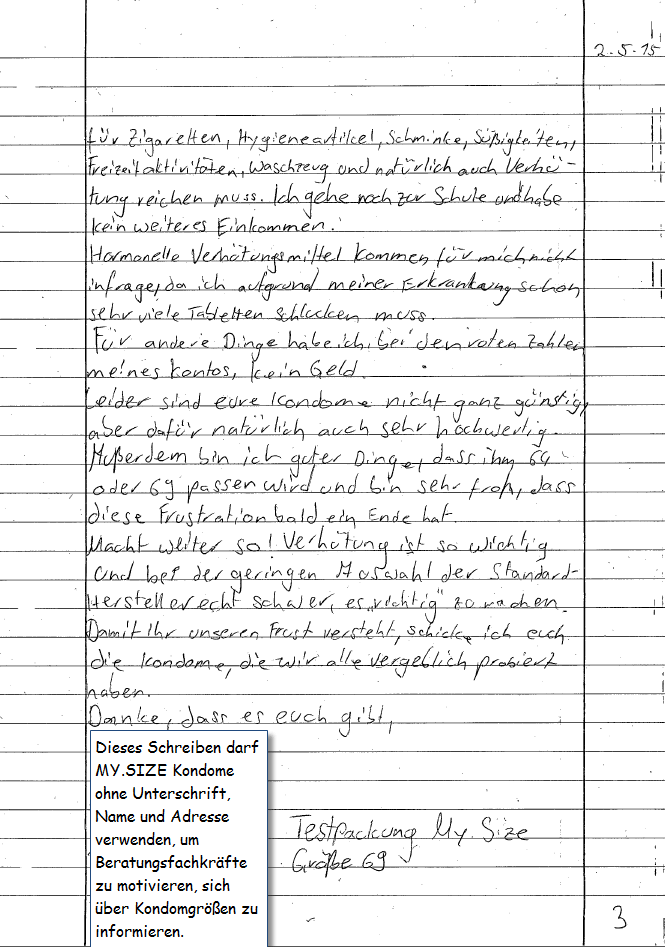 2.5.15
für Zigaretten, Hygieneartikel, Schminke, Süßigkeiten,
Freizeitaktivitäten, Waschzeug und natürlich auch Verhü-
tung reichen muss. Ich gehe noch zur Schule und habe
kein weiteres Einkommen.
Hormonelle Verhütungsmittel kommen für mich nicht
infrage, da ich aufgrund meiner Erkrankung schon
sehr viele Tabletten schlucken muss.
Für andere Dinge habe ich, bei den roten Zahlen
meines Kontos, kein Geld.
Leider sind eure Kondome nicht ganz günstig,
aber dafür natürlich auch sehr hochwertig.
Außerdem bin ich guter Dinge, dass ihm 64
oder 69 passen wird und bin sehr froh, dass
diese Frustration bald ein Ende hat.
Macht weiter so! Verhütung ist so wichtig
und bei der geringen Auswahl der Standard-
Hersteller echt schwer, es „richtig" zu machen.
Damit Ihr unseren Frust versteht, schicke ich euch
die Kondome, die wir alle vergeblich probiert
haben.
Danke, dass es euch gibt,
Dieses Schreiben darf
MY.SIZE Kondome
ohne Unterschrift,
Name und Adresse
verwenden, um
Beratungsfachkräfte
zu motivieren, sich
über Kondomgrößen zu
informieren.
Testpackung My Size
Größe 69 ✓
3